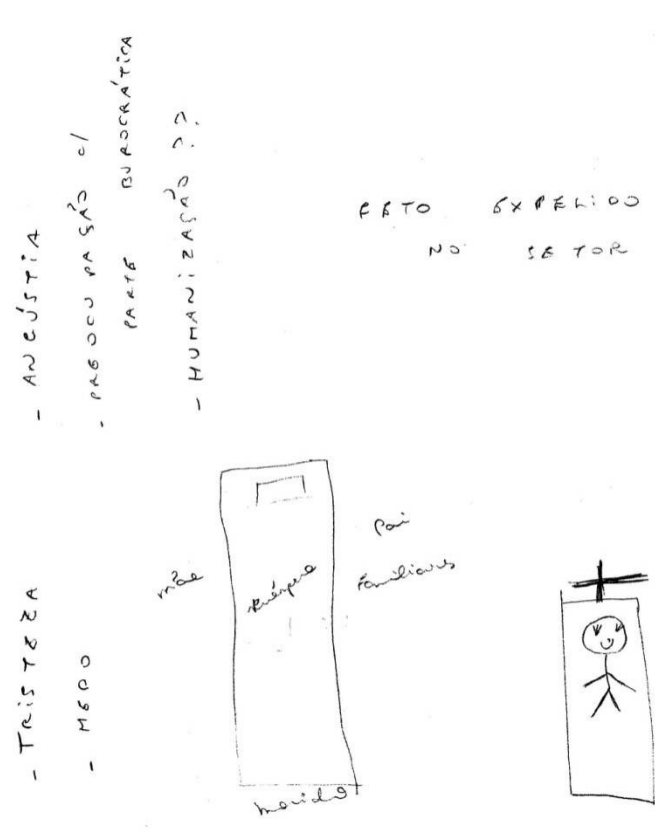 - TRISTEZA
- MEDO
- ANGÚSTIA
- PREOCUPAÇÃO c/
PARTE BUROCRÁTICA
- HUMANIZAÇÃO ??
FETO EXPELIDO
NO SETOR
mãe
Puérpera
Pai
Familiares
marido